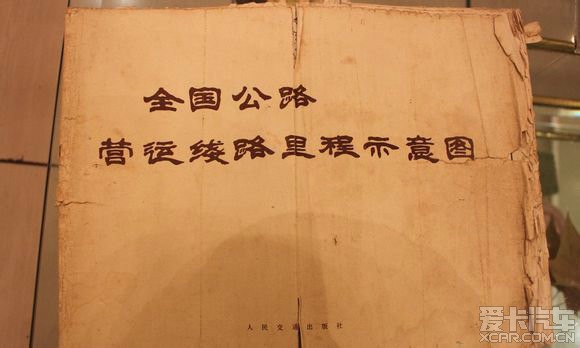 全国公路
营运线路里程示意图
人民交通出版社
爱卡汽车
XCAR.COM.CN